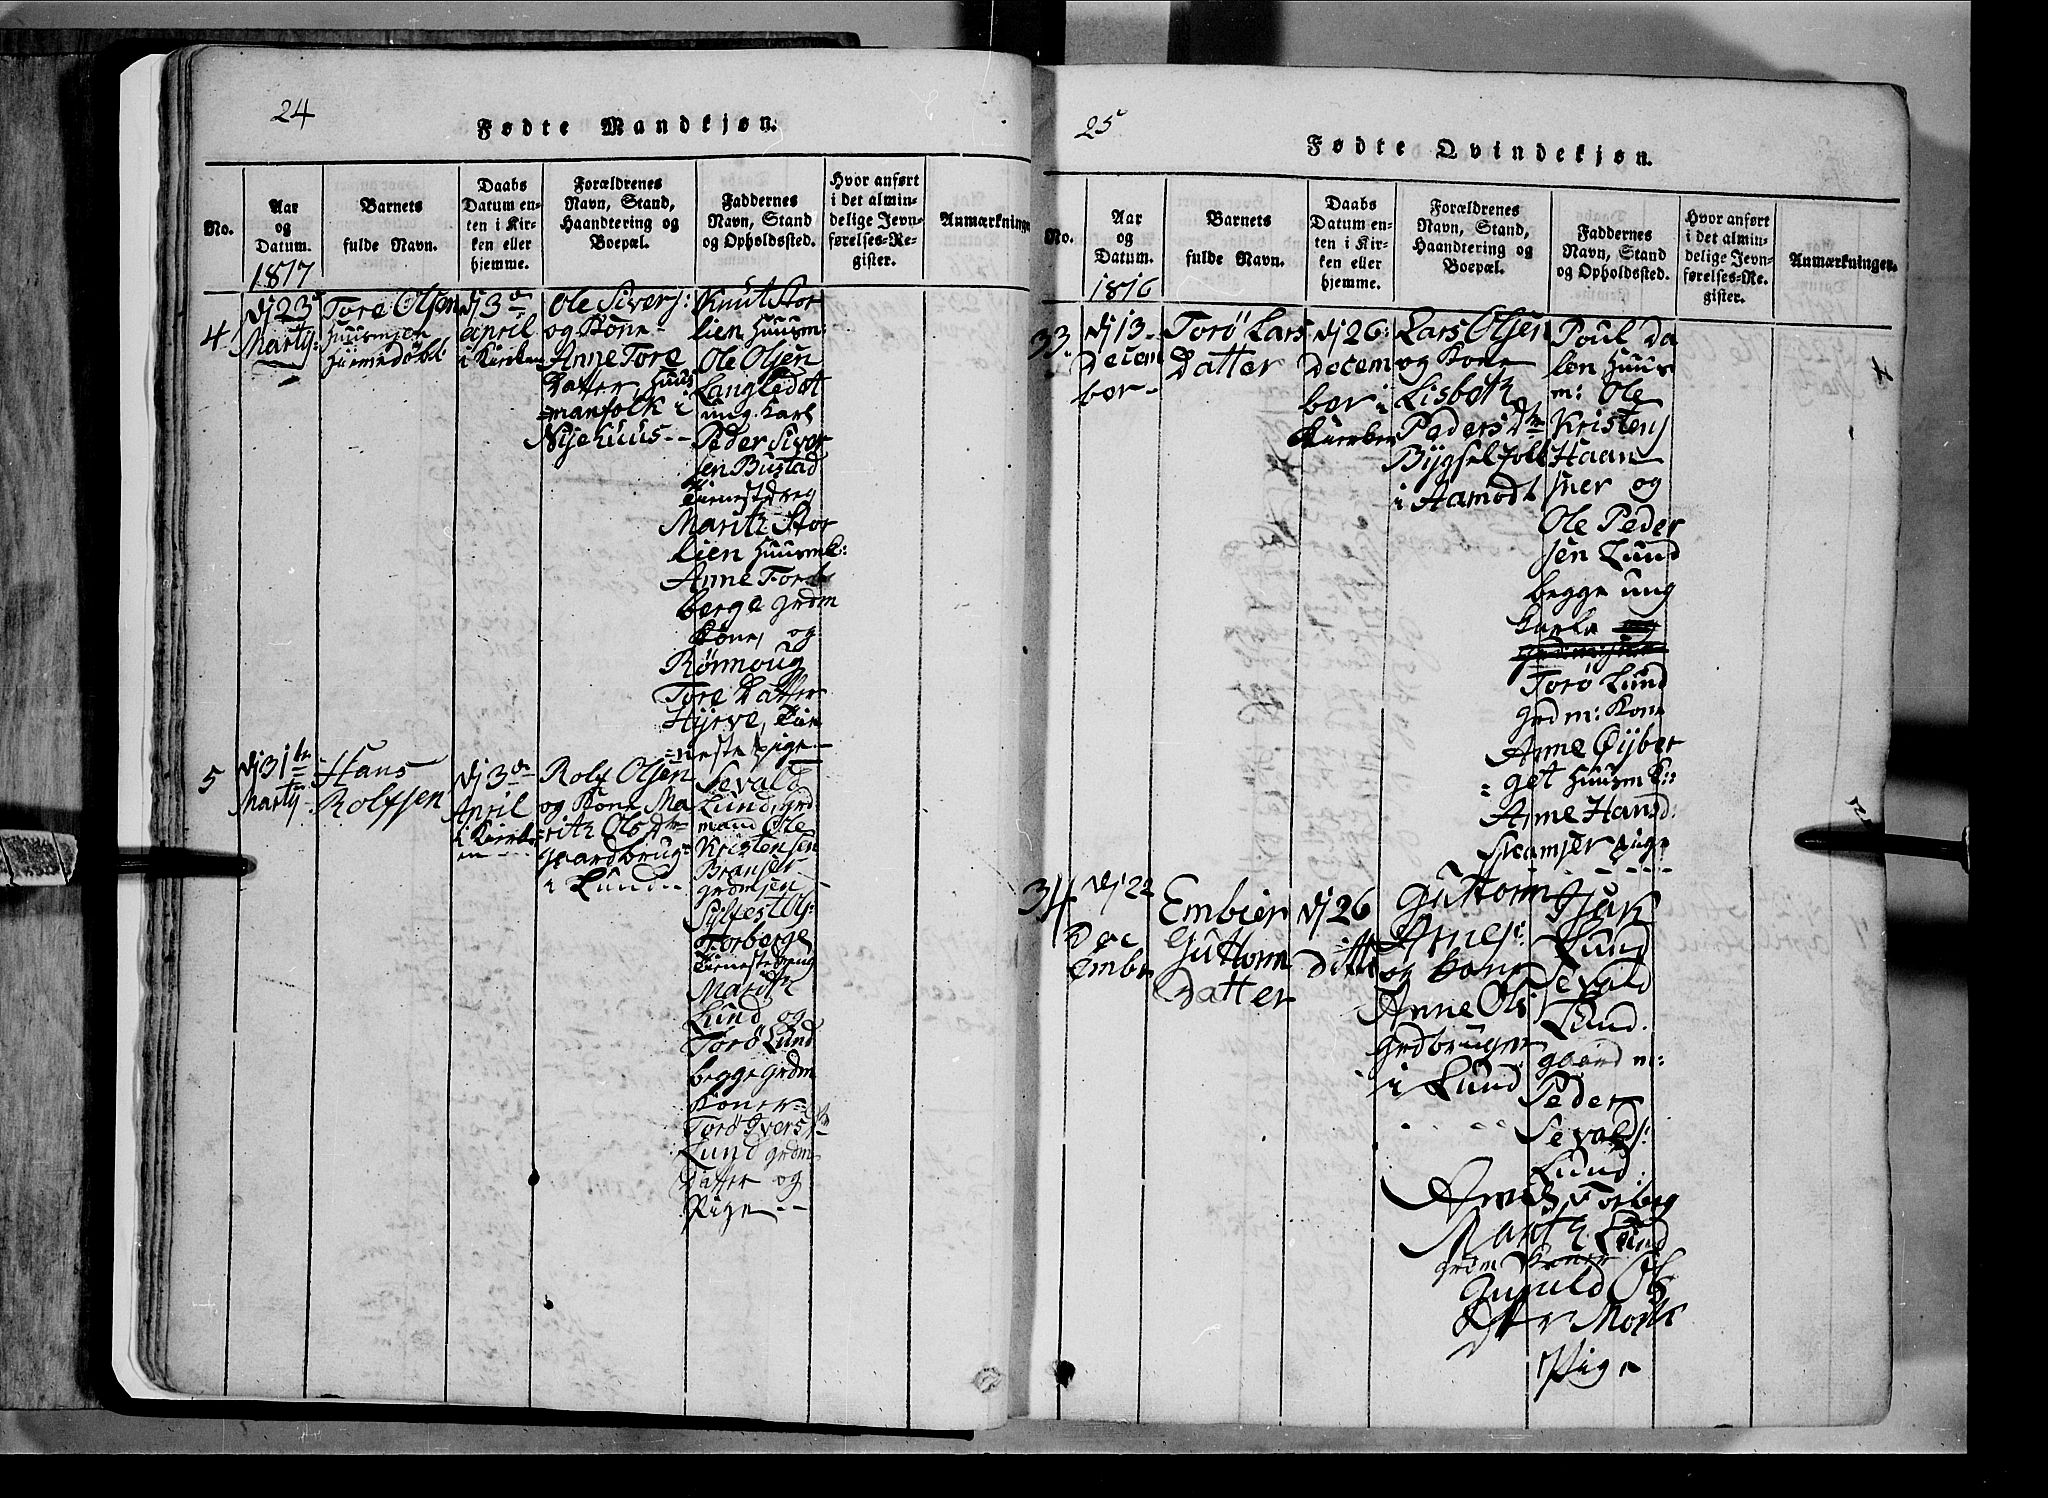 24
Fødte Mandkjøn.
No.
Aar
og
Datum.
1817
Barnets
fulde Navn.
Daabs
Datum en-
ten i Kir-
ken eller
hjemme.
Forældrenes
Navn, Stand,
Haandtering og
Boepæl.
Faddernes
Navn, Stand
og Opholdssted.
Hvor anført
i det almin-
delige Jevn-
førelses-Re-
gister.
Anmærkninger
4.
Dj 23
Marty:
Tore Olsen
Dj 3
april
i Kirken
Ole Sivers:
og Kone
Anne Tore
Datter Huus
=manfolk i
Nyehuus--
Knut Stor
lien Huusm:
Ole Olsen
Langledet
ung Karl
Peder Siver
sen Bustad
Tienestdreg
Marith Stor
lien Huusmk:
Anne Ford
berge grdm
Kone, og
Rönnoug
Tore Datter
Hyrve, Tien
=neste pige
5
Dj 31te
Marty
Hans
Rolfsen
Dj 3
April
i Kirke
n ---
Rolf Olsen
og Kone Ma
=rith Ols
gaardbrug:
i Lund--
Sevald
Lund, grd
mand Ole
Kristensen
Branser
grdmsen
Sylfest Ols:
Forberge
Tienestedreng
Marith
Lund og
Torö Lund
begge grdm
Koner--
Torö Ivers
Lund grdm
Datter og
Pige--
25
Fødte Qvindekjøn.
No.
Aar
og
Datum.
1816
Barnets
fulde Navn.
Daabs
Datum en-
ten i Kir-
ken eller
hjemme.
Forældrenes
Navn, Stand,
Haandtering og
Boepæl.
Faddernes
Navn, Stand
og Opholdssted.
Hvor anført
i det almin-
delige Jevn-
førelses-Re-
gister.
Anmærkninger.
33.
Dj 13
Decem
ber-
Torö Lars
Datter
Dj 26
Decem
ber i
Lars Olsen
og Kone
Lisbeth
Peders
Bygselfolk
i Aamodt
Poul Da
len Huus
m: Ole
Kristens
Haan
sner og
Ole Peder
sen Lund
begge ung
Karle
Torö Lund
grd m: Kone
Anne Öyber
=get Huusm K:
Anne Hansd:
Skamser pige
34
Dj 22
Dec
Embr
Embier
Guttorm
Datter
Dj 26
Ditto
Guttorm
Arnes:
og Kone
Anne Ols
grdbruger
i Lund
Isak
Lund
Sevald
Lund.
gaard m:
Peder
Sevalds:
Lund.
Forberg
Marith Lund
grdm Koner
Ols
Datter Mork
Pige